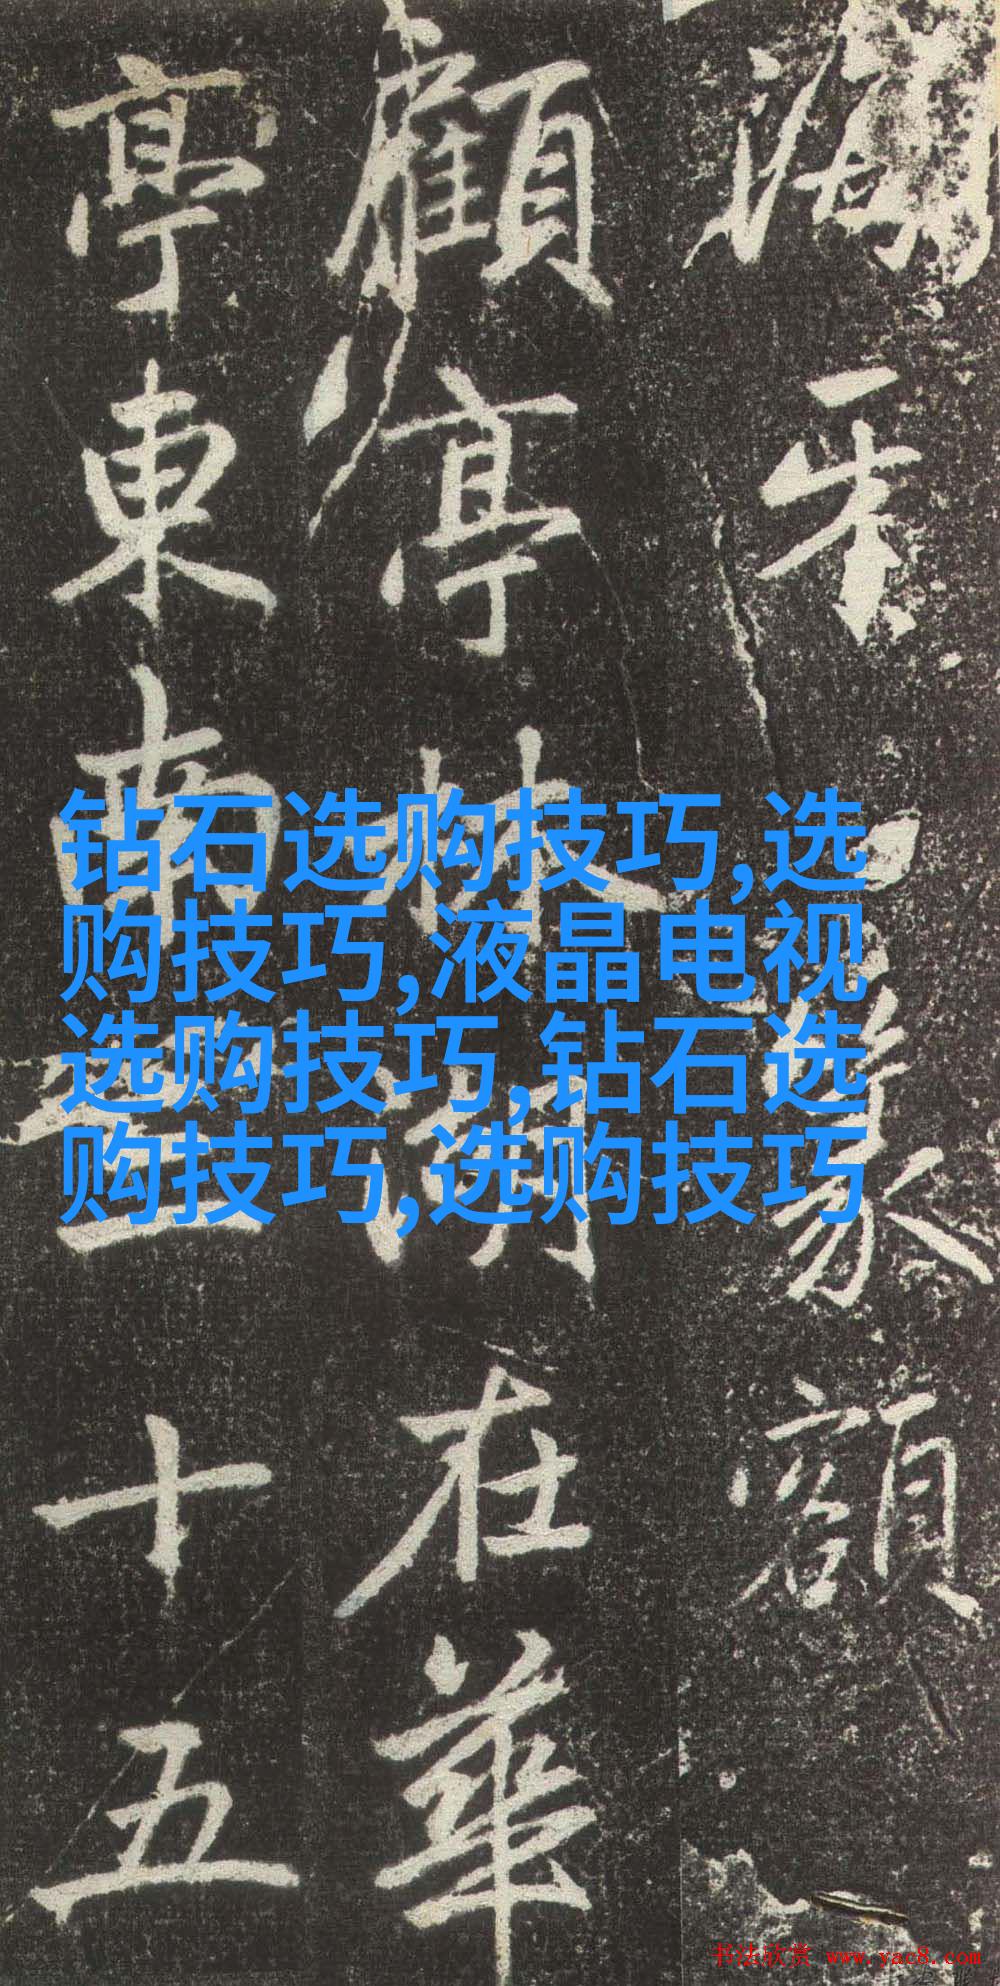 篆額
顧亭林湖在華
亭東南三十五
钻石选购技巧,选
购技巧,液晶电视
选购技巧,钻石选
购技巧,选购技巧
书法欣赏 www.yac8.com